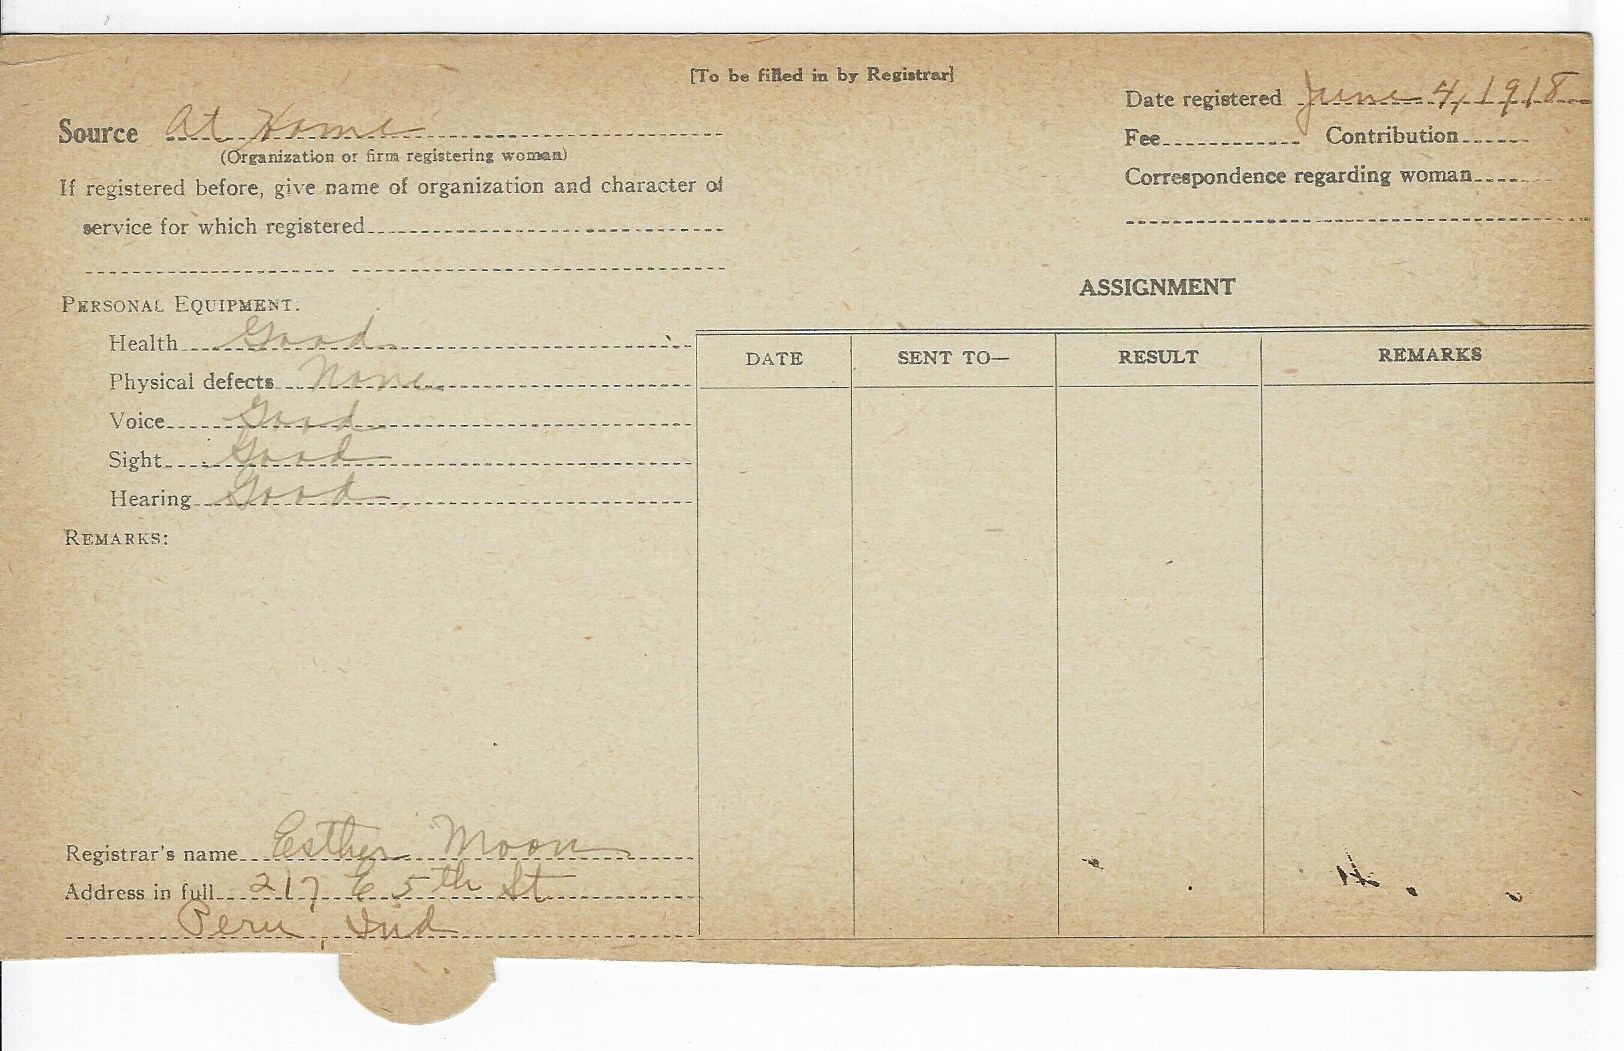 [To be filled in by Registrar]
Date registered June 4, 1918
Source At Home
(Organization or firm registering woman)
Fee Contribution
If registered before, give name of organization and character of
Correspondence regarding woman
service for which registered
ASSIGNMENT
PERSONAL EQUIPMENT:
Health Good
DATE SENT TO— RESULT REMARKS
Physical defects None
Voice Good
Sight Good
Hearing Good
REMARKS:
Registrar's name Esther Moon
Address in full 217 E 5th St
Peru, Ind